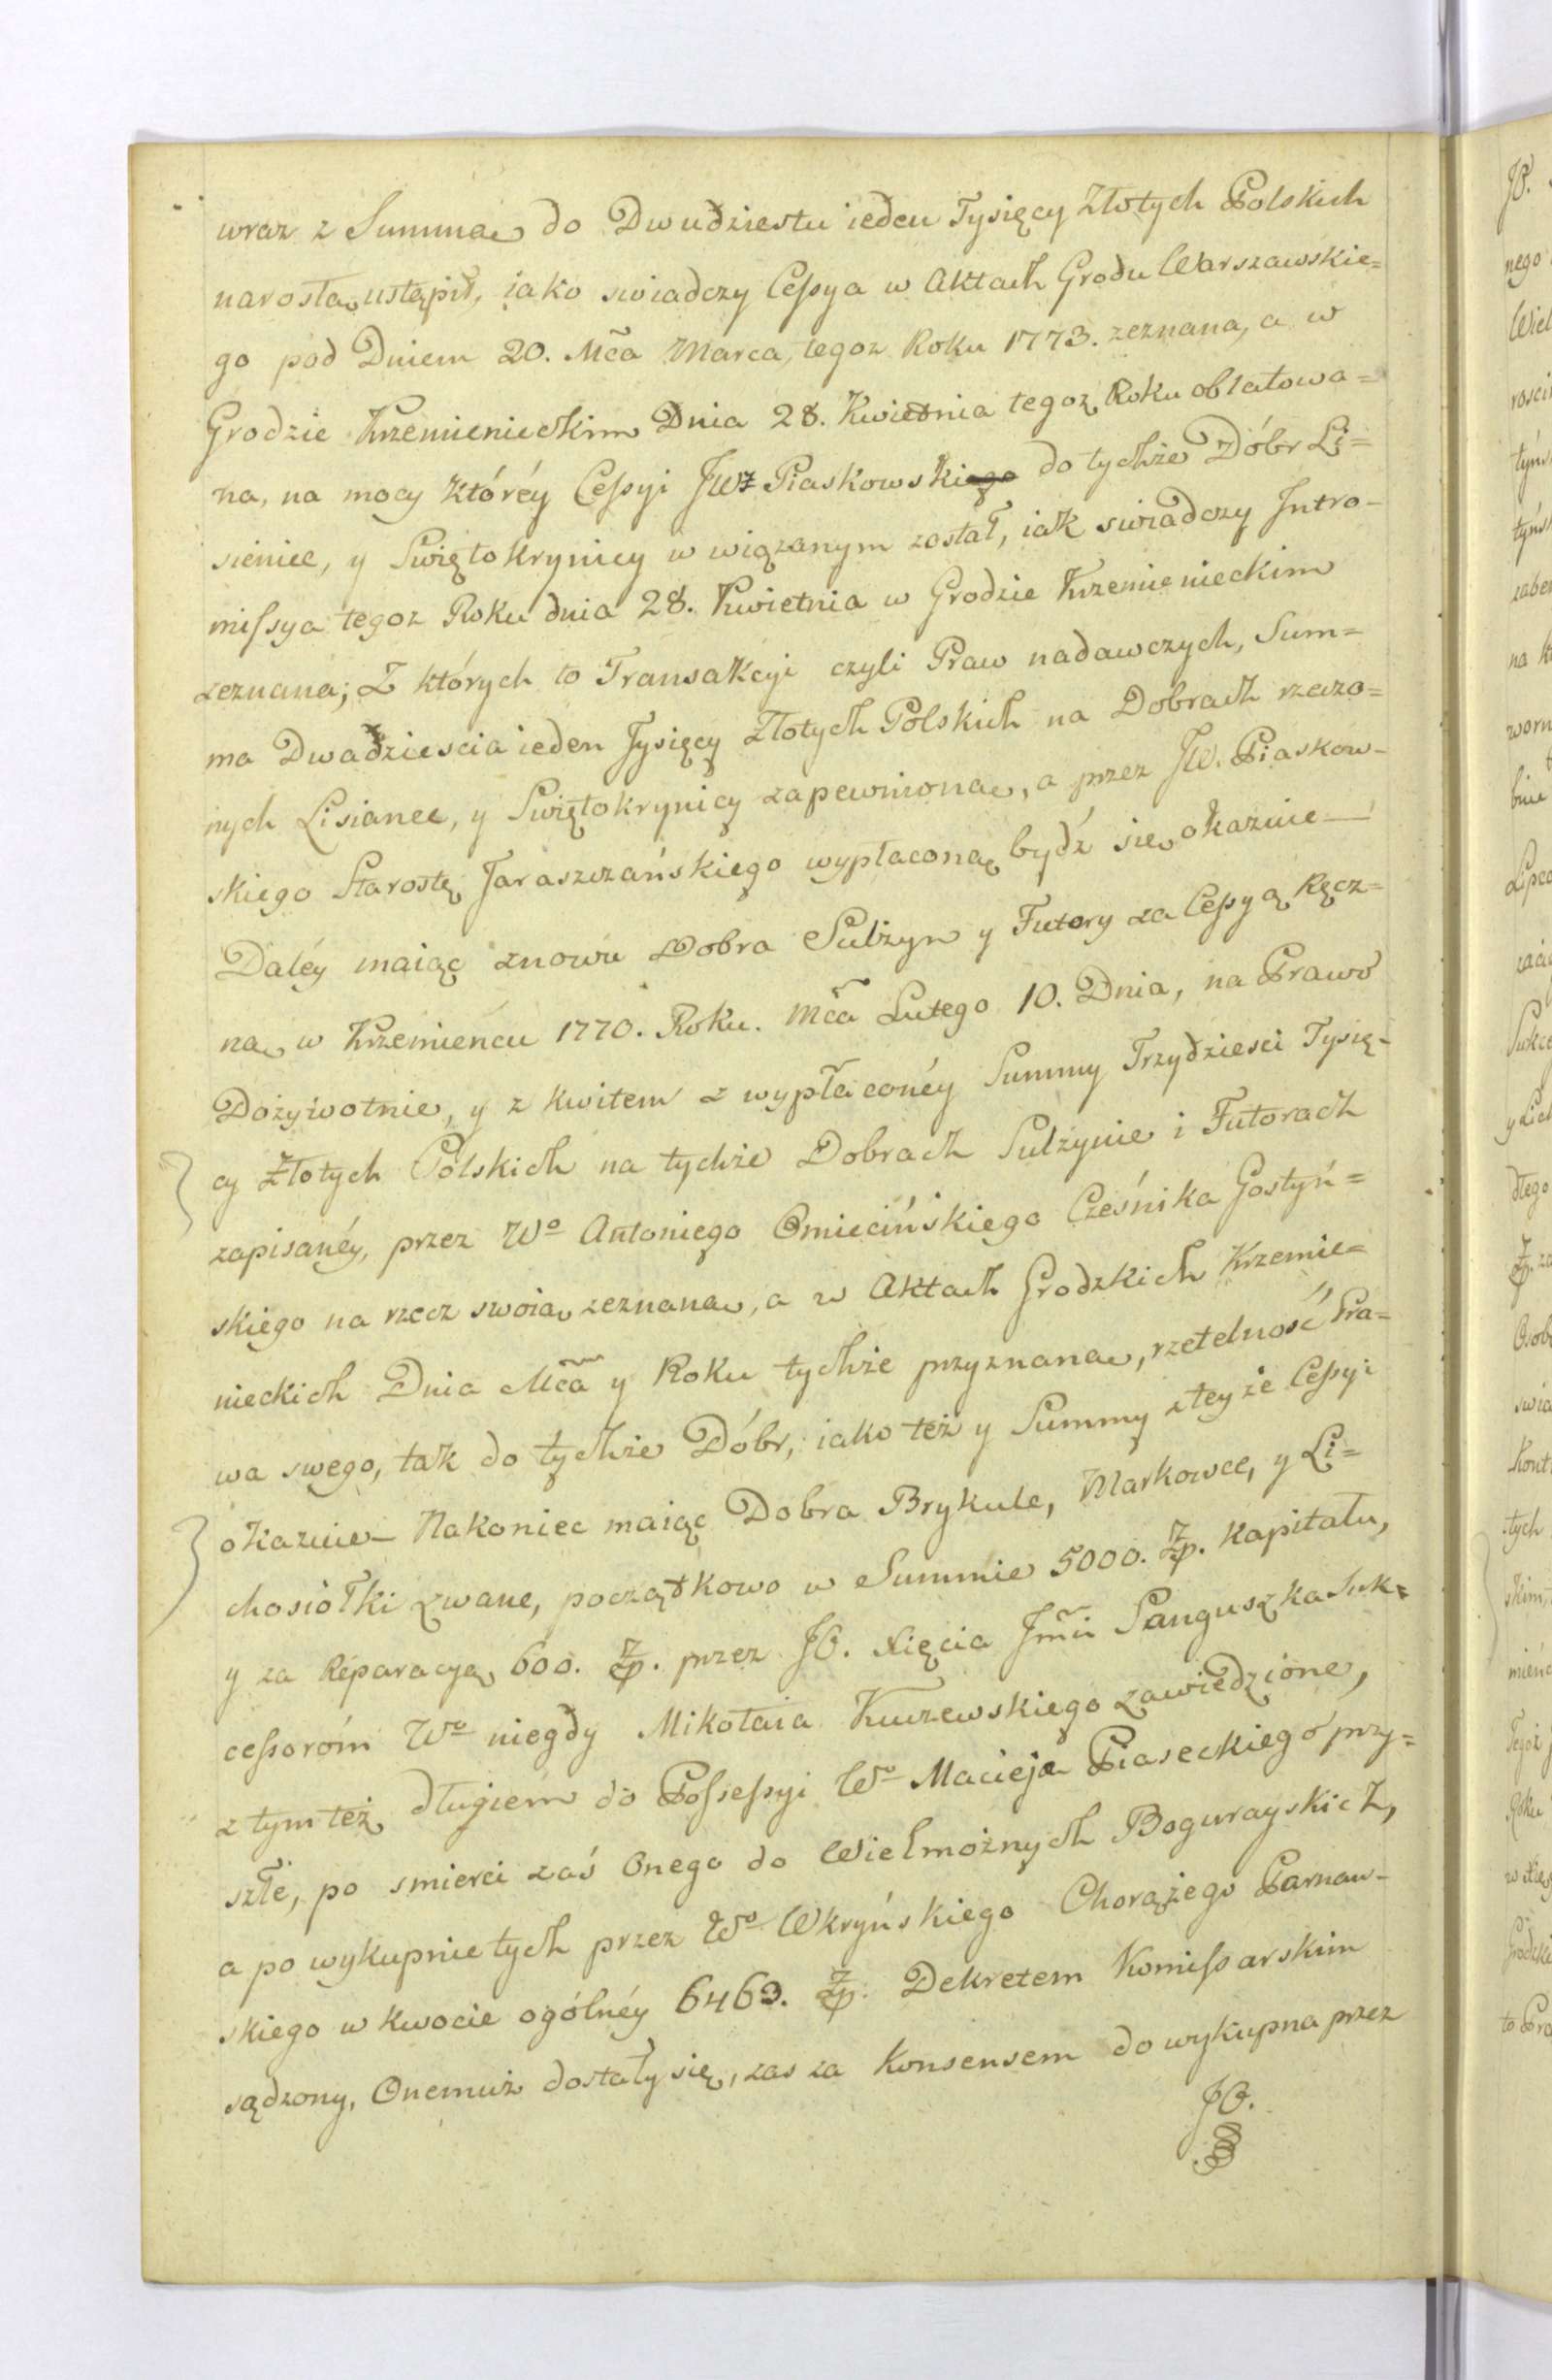 wraz z Summą do Dwudziestu ieden Tysięcy Złotych Polskich
narosłą ustąpił, iako swiadczy Cessya w Aktach Grodu Warszawskie=
go pod Dniem 20. Mča Marca, tegoz Roku 1773. zeznana, a w
Grodzie Krzemienieckim Dnia 28. Kwietnia tegoz Roku oblatowa=
na, na mocy któréy Cessyi JWz Piaskowskiego do tychże Dóbr Li=
sieniec, y Swiętokrynicy w wiązanym został, iak swiadczy Intro-
missya tegoz Roku dnia 28. Kwietnia w Grodzie Krzemienieckim
zeznana; Z których to Transakcyi czyli Praw nadawczych, Sum=
ma Dwadziescia ieden Tysięcy Złotych Polskich na Dobrach rzeczo=
nych Lisianec, y Swiętokrynicy zapewniona, a przez JW. Piaskow-
skiego Starostę Taraszczańskiego wypłaconą bydź się okazuie —
Daléy maiąc znowu Dobra Sulżyn y Futory za Cessyą Ręcz=
ną w Krzemieńcu 1770. Roku. Mča Lutego 10. Dnia, na Prawo
Dożywotnie, y z kwitem z wypłaconéy Summy Trzydziesci Tysię-
cy Złotych Polskich na tychże Dobrach Sulżynie i Futorach
zapisanéy, przez Wo Antoniego Omiecińskiego Cześnika Gostyń=
skiego na rzecz swoią zeznaną, a w Aktach Grodzkich Krzemie=
nieckich Dnia Mča y Roku tychże przyznaną, rzetelność Pra-
wa swego, tak do tychże Dóbr, iako też y Summy z teyże Cessyi
okazuie — Nakoniec maiąc Dobra Brykule, Markowce, y Li=
chosiółki zwane, początkowo w Summie 5000. Zp. Kapitału,
y za Réparacyą 600. Zp. przez JO. Xięcia Jmči Sanguszka Suk=
cessoróm Wo niegdy Mikołaia Kuczewskiego zawiedzione,
z tym też długiem do Possessyi Wo Macieja Piaseckiego przy=
szłe, po smierci zaś Onego do Wielmożnych Bogurayskich,
a po wykupnie tych przez Wo Wkryńskiego Chorążego Parnaw-
skiego w kwocie ogólnéy 6463. Zp. Dekretem Komissarskim
sądzony, Onemuż dostały się, zas za Konsensem do wykupna przez
JO.